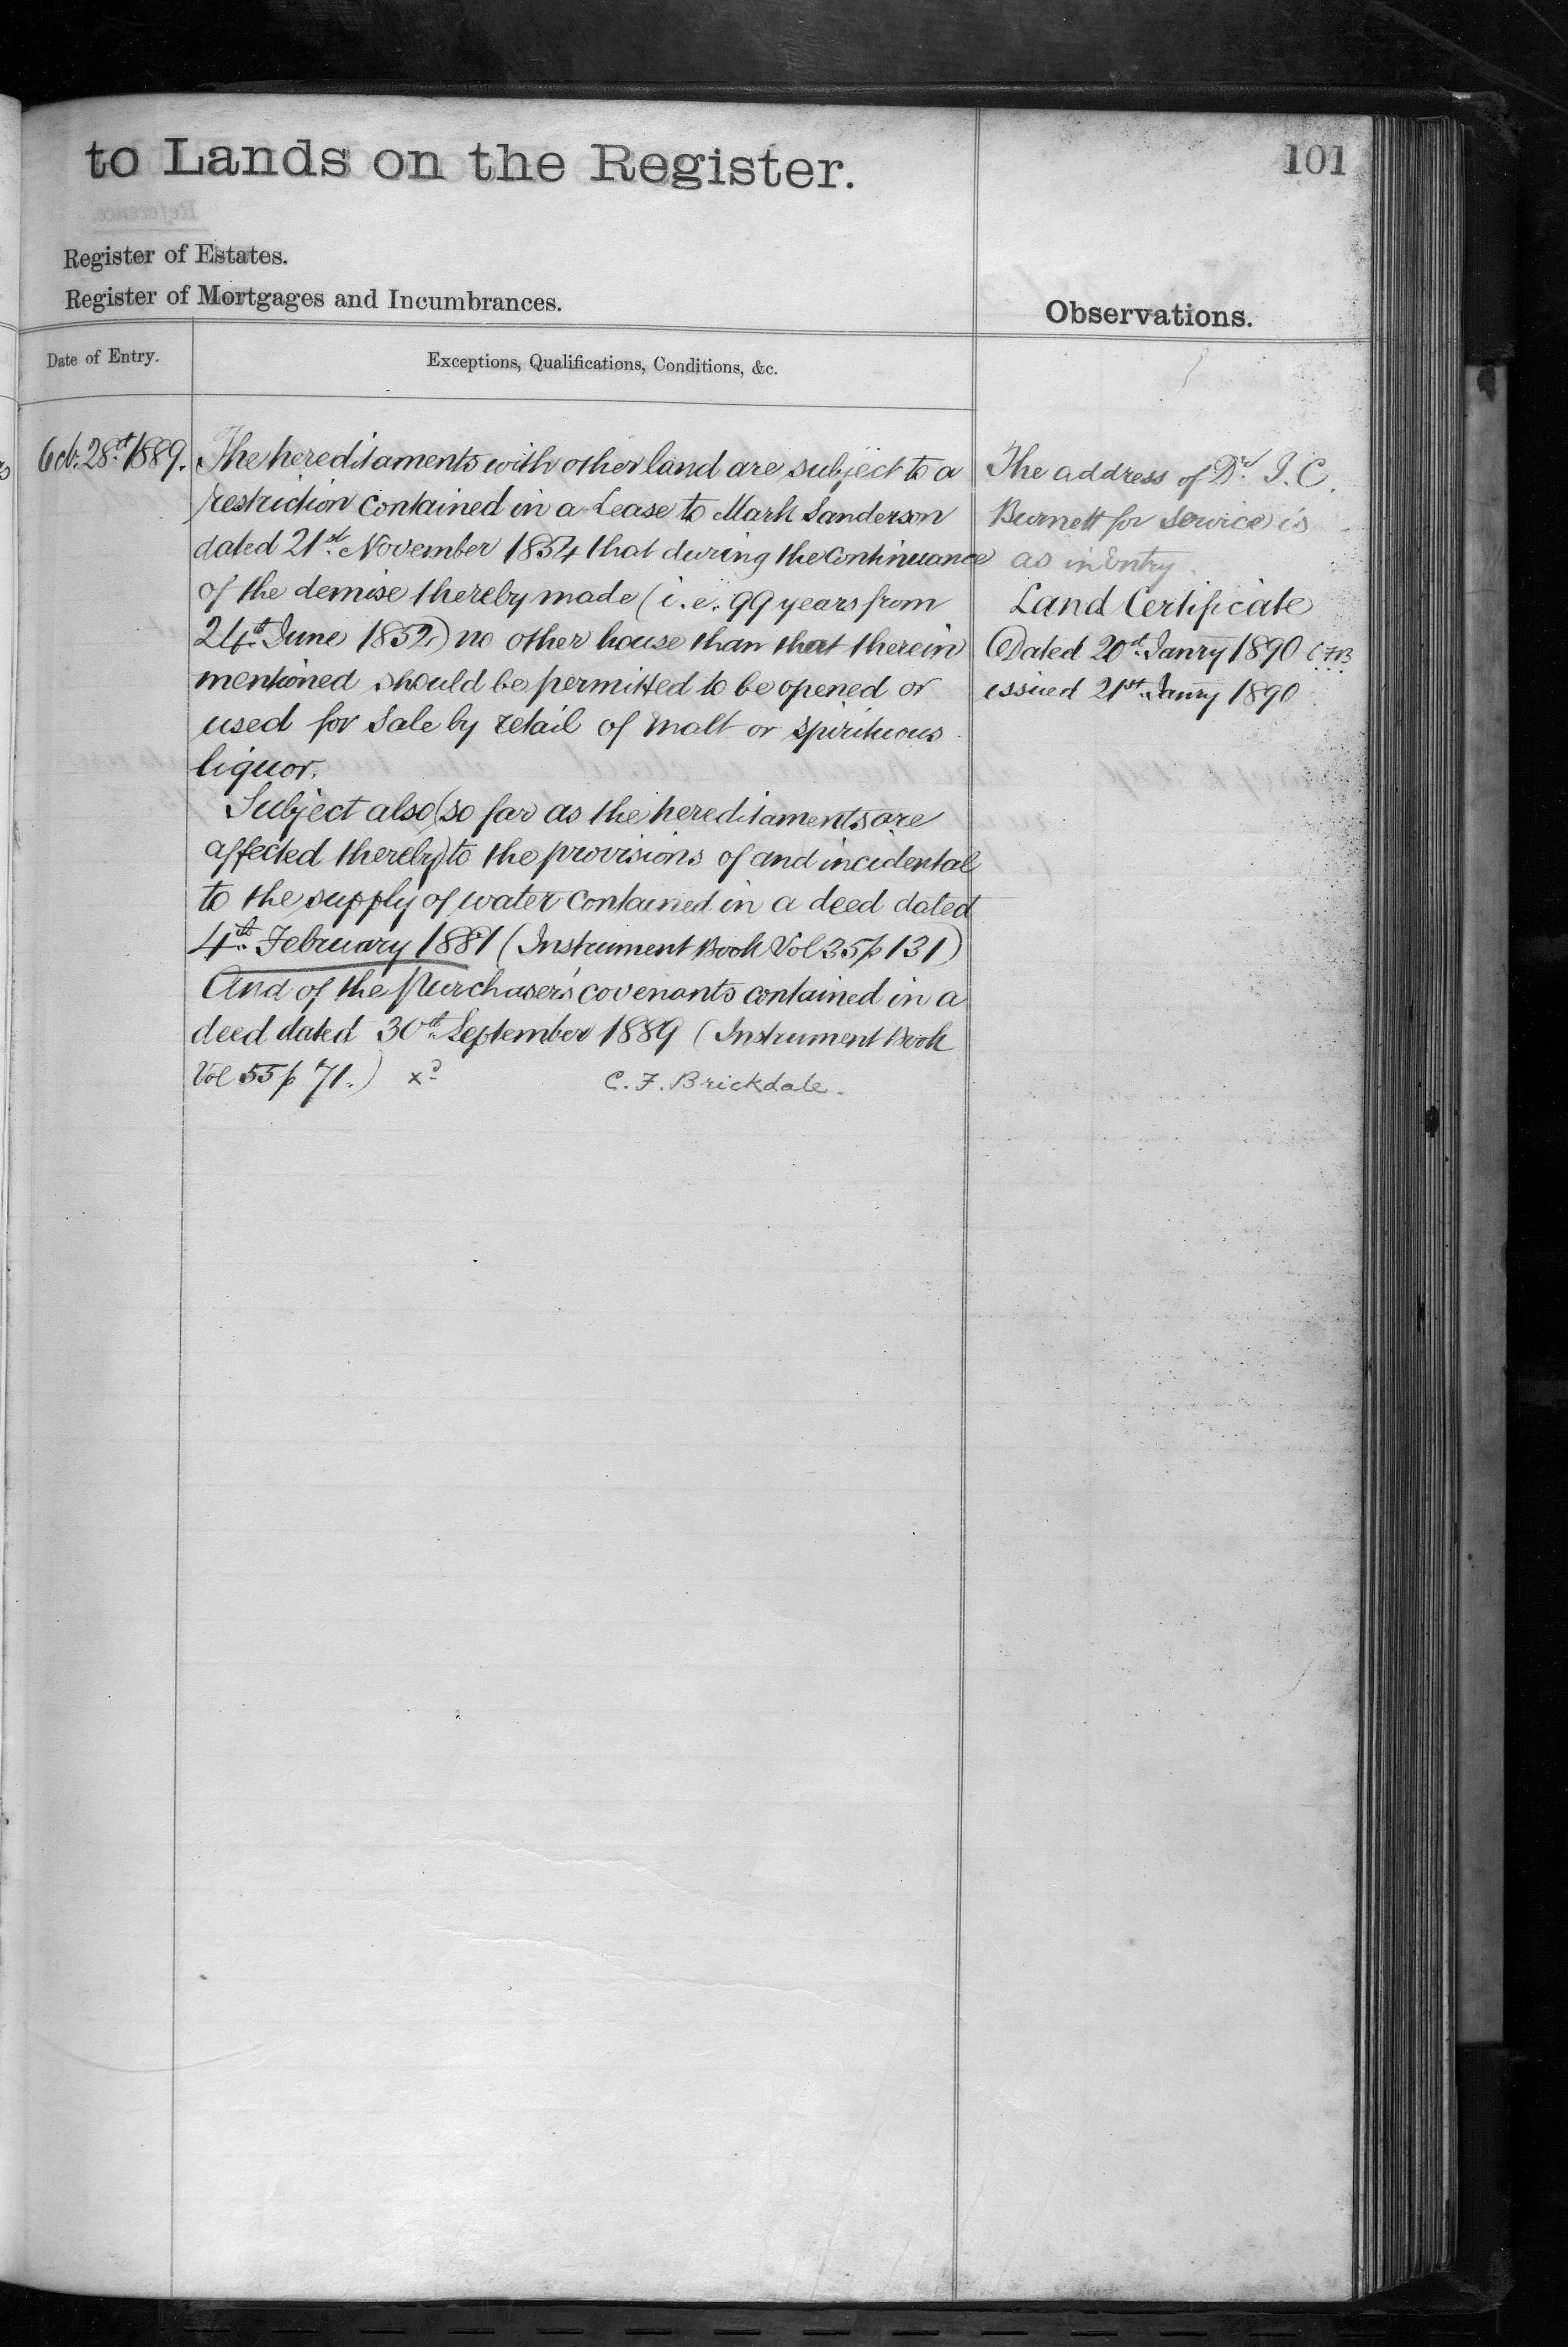 to Lands on the Register.
101
Register of Estates.
Register of Mortgages and Incumbrances.
Observations.
Date of Entry.
Exceptions, Qualifications, Conditions, &c.
Oct. 28st 1889.
The hereditaments with other land are subject to a
restriction contained in a Lease to Mark Sanderson
dated 21st November 1854 that during the continuance
of the demise thereby made (i.e. 99 years from
24th June 1852) no other house than that therein
mentioned should be permitted to be opened or
used for sale by retail of malt or spirituous
liquor.
Subject also (so far as the hereditaments are
affected thereby) to the provisions of and incidental
to the supply of water contained in a deed dated
4th February 1881 (Instrument Book Vol 35 p 131)
And of the Purchaser's covenants contained in a
deed dated 30th September 1889 (Instrument Book
Vol 55 p 71.) xd C. F. Brickdale.
The address of Dr. J. C.
Burnett for service is
as in Entry.
Land Certificate
Dated 20st Janry 1890 CFB
issued 21st Janry 1890